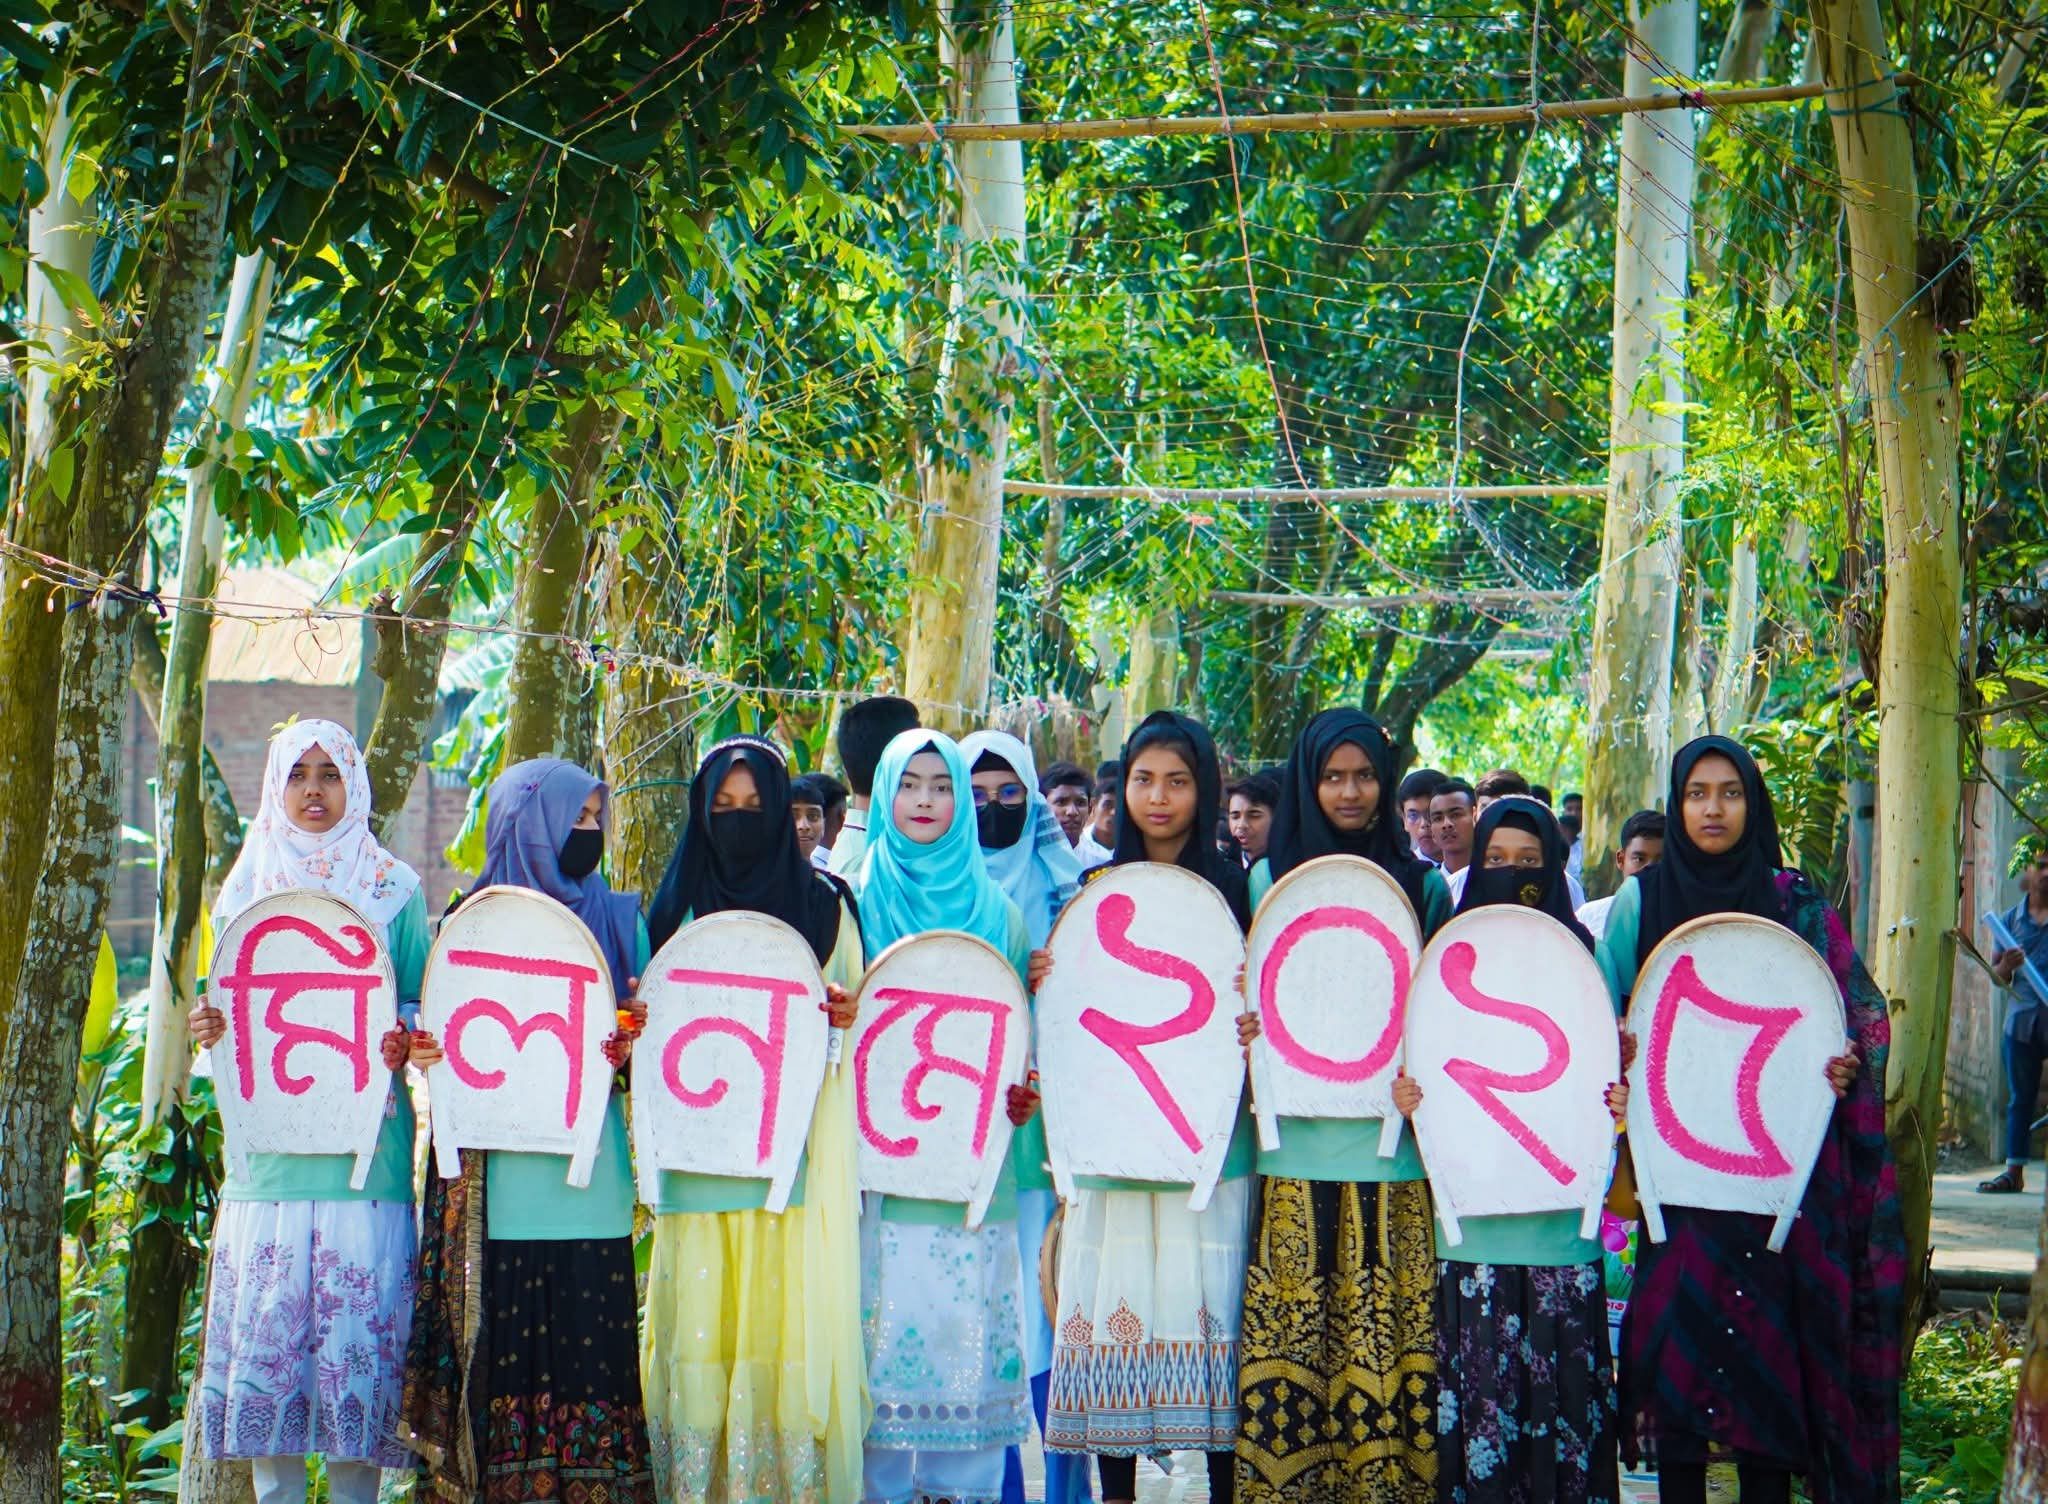 মিলনমে ২০২৫